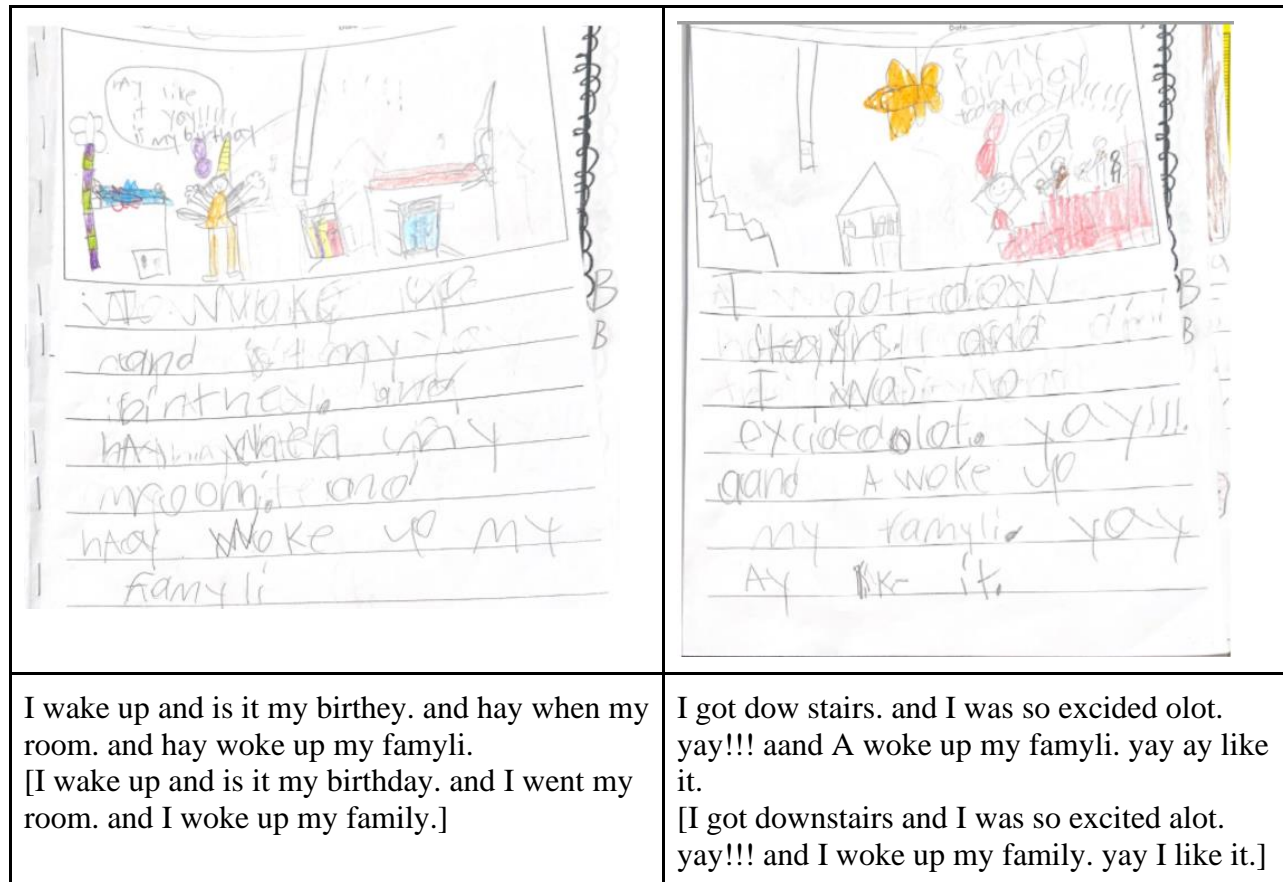 my like
it yay!!!!!
is my birthday
I WOKE up
and is it my
birthey. and
hAy when my
room. and
hAy woke up my
famyli
B
B
Date
s my
birthday
yay
I got dow
stairs. and
I was so
excided olot. yay!!!
aand A woke up
my famyli. yay
Ay like it.
B
B
I wake up and is it my birthey. and hay when my
room. and hay woke up my famyli.
[I wake up and is it my birthday. and I went my
room. and I woke up my family.]
I got dow stairs. and I was so excided olot.
yay!!! aand A woke up my famyli. yay ay like
it.
[I got downstairs and I was so excited alot.
yay!!! and I woke up my family. yay I like it.]